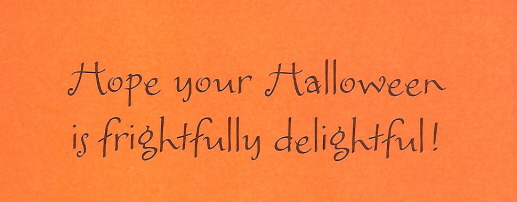 Hope your Halloween
is frightfully delightful!